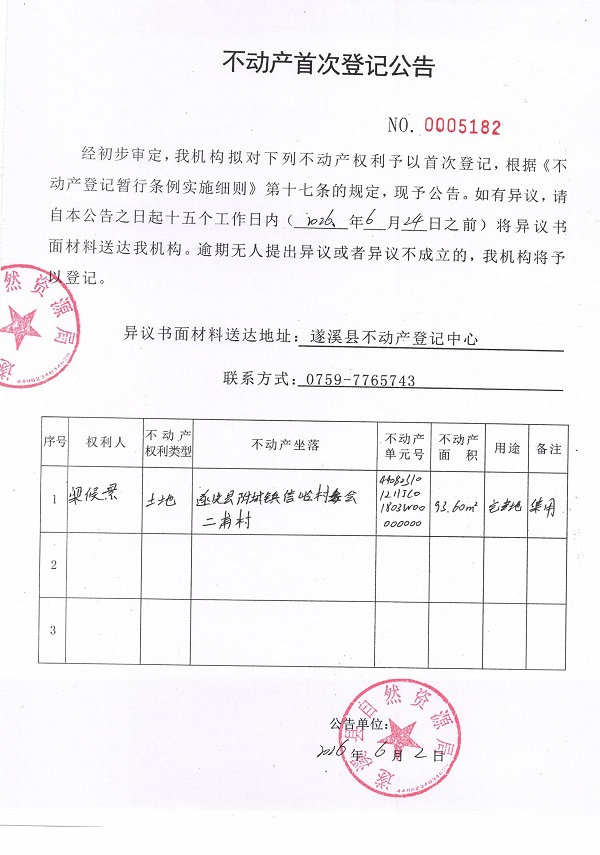 不动产首次登记公告
NO. 0005182
经初步审定，我机构拟对下列不动产权利予以首次登记，根据《不
动产登记暂行条例实施细则》第十七条的规定，现予公告。如有异议，请
自本公告之日起十五个工作日内（2026年6月24日之前）将异议书
面材料送达我机构。逾期无人提出异议或者异议不成立的，我机构将予
以登记。
异议书面材料送达地址：遂溪县不动产登记中心
联系方式：0759-7765743
序号 权利人 不动产权利类型 不动产坐落 不动产单元号 不动产面积 用途 备注
1 梁候景 土地 遂溪县附城镇信岭村委会 44082310 93.60m² 宅基地 集用
二甫村 1211JC0
1803W00
000000
2
3
公告单位：
2026年6月2日
遂溪县自然资源局
然资源局
遂